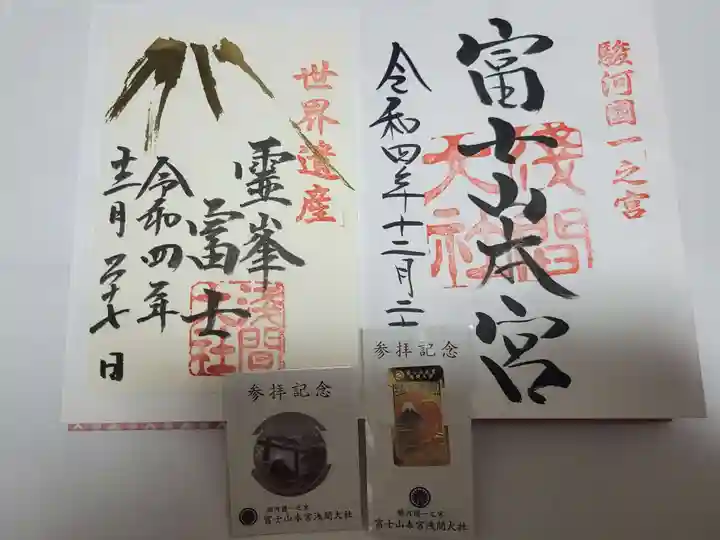 駿河國一之宮
富士山本宮
淺間大社
令和四年十二月二十
世界遺産
霊峯
富士
淺間大社
令和四年
十二月二十七日
参拝記念
駿河國一之宮
富士山本宮浅間大社
参拝記念
駿河國一之宮
富士山本宮浅間大社